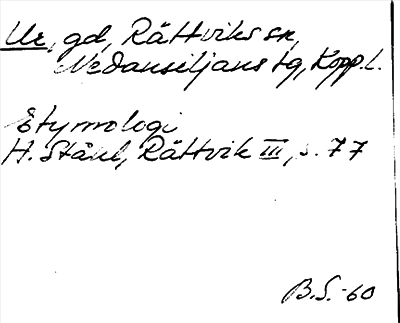 Ue, gd, Rättviks sn,
Nedansiljans tg, Kopp. l.
Etymologi
H. Ståhl, Rättvik III, s. 77
B.S. -60